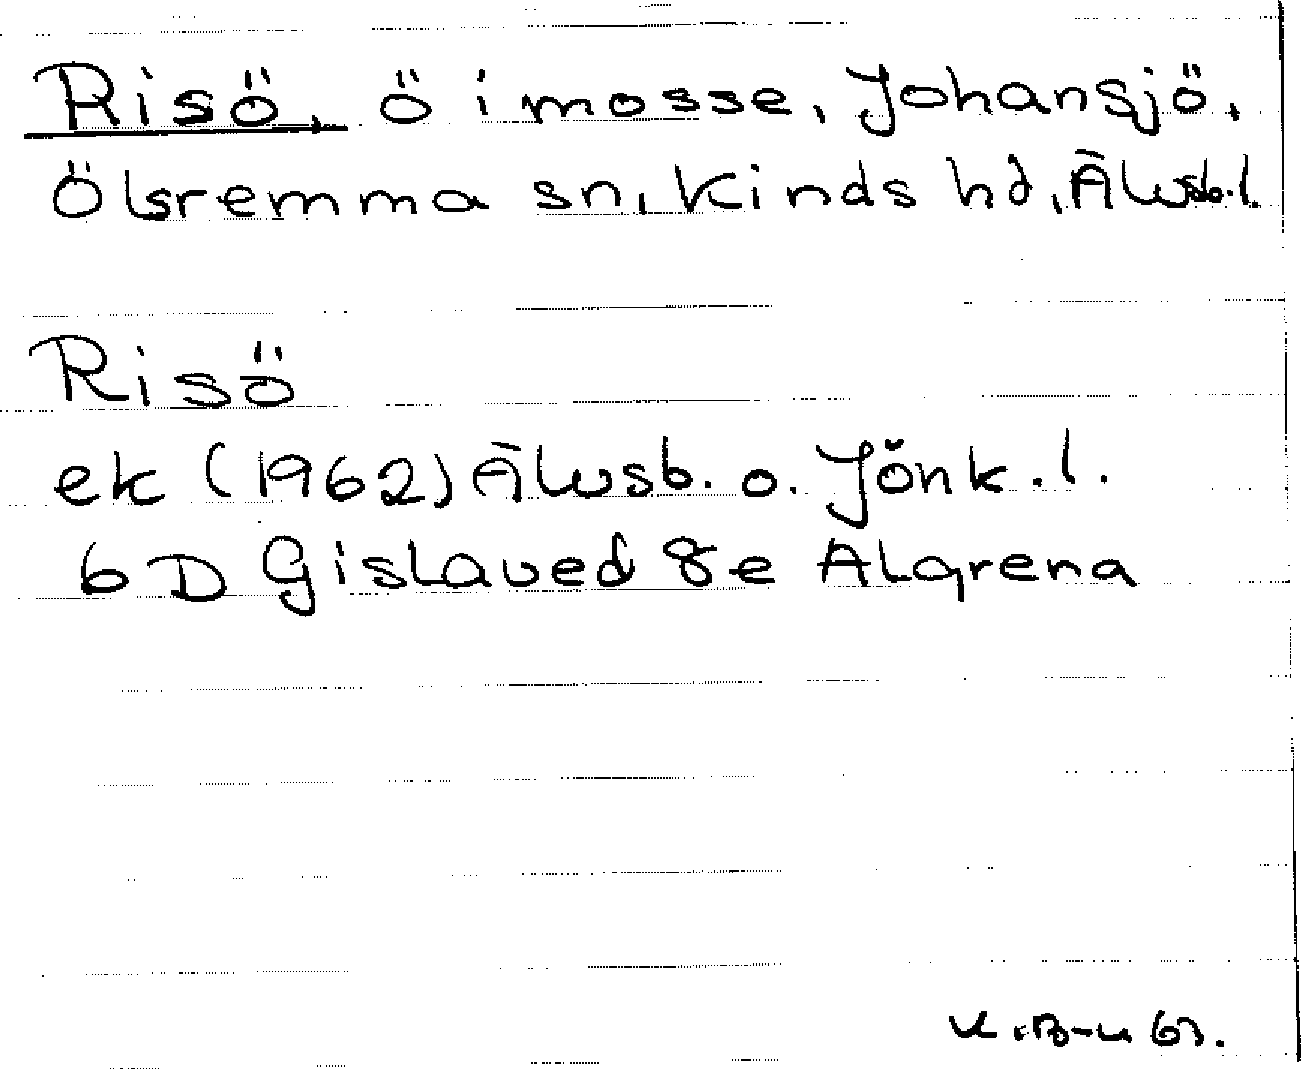 Risö, ö i mosse, Johansjö,
Ölsremma sn, Kinds hd, Älvsb.l.
Risö
ek (1962) Älvsb. o. Jönk.l.
6D Gislaved 8e Algrena
63.